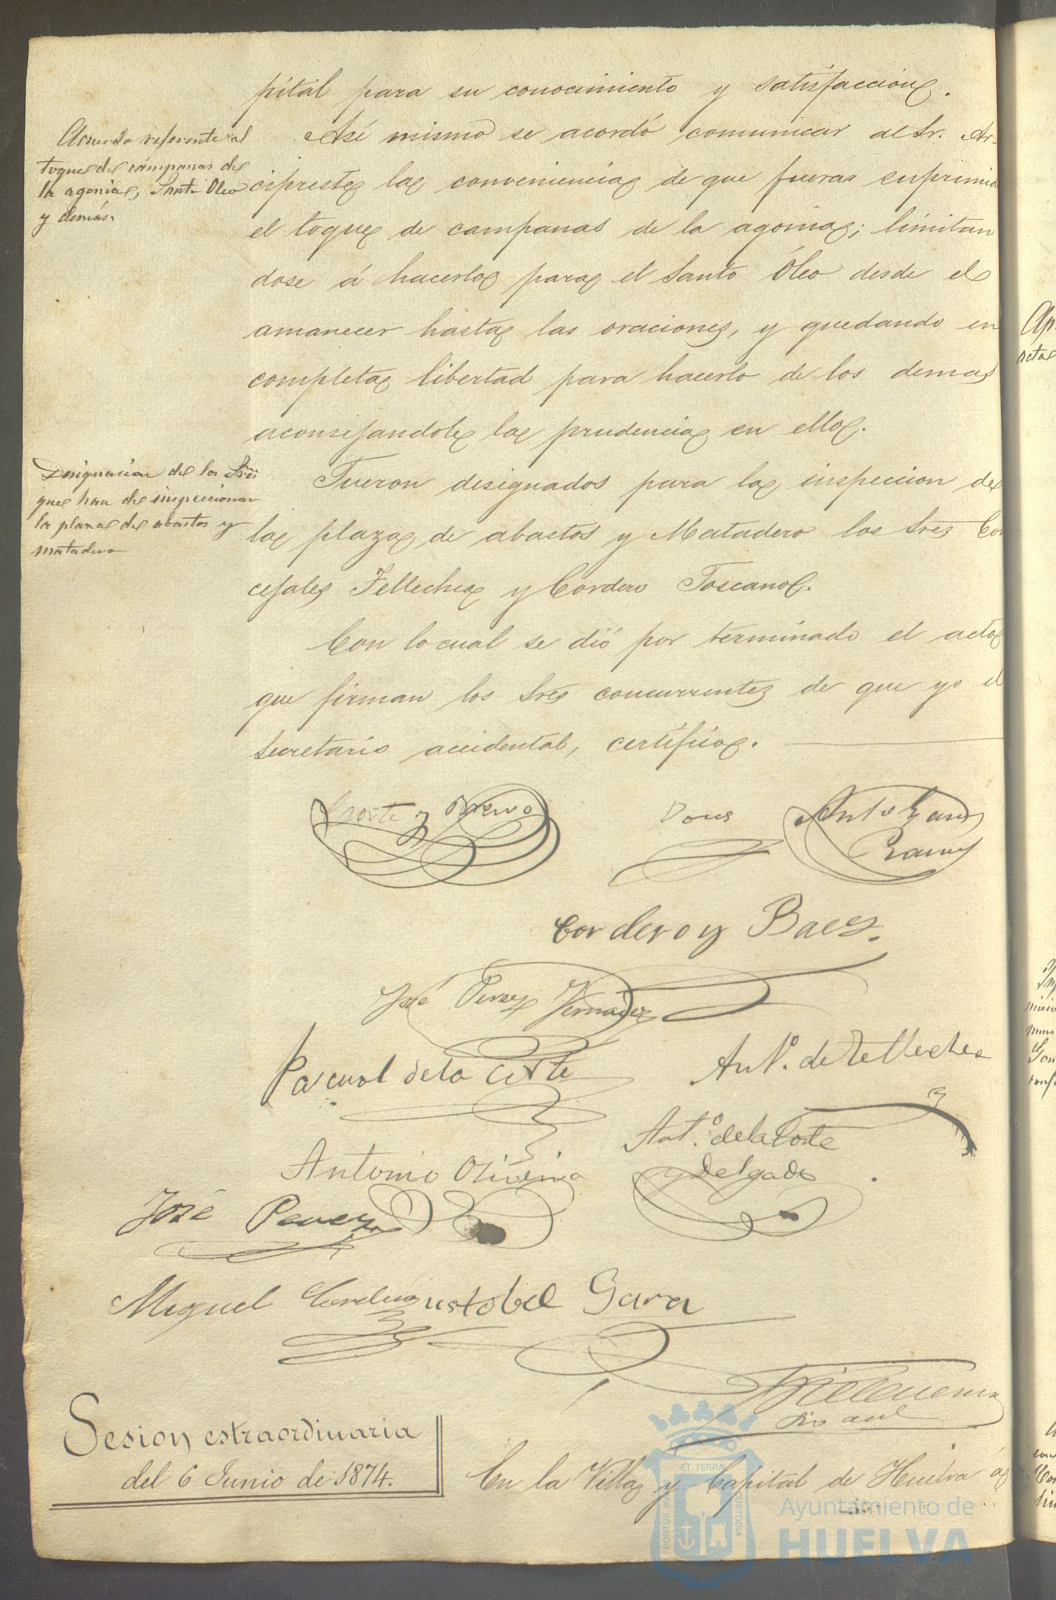 pital para su conocimiento y satisfaccion.
Acuerdo referente al
toque de campanas de
la agonia, Santo Oleo
y demás.
Asi mismo se acordó comunicar al Sr. Ar-
cipreste la conveniencia de que fuera suprimido
el toque de campanas de la agonia; limitan
dose á hacerlo para el Santo Óleo desde el
amanecer hasta las oraciones, y quedando en
completa libertad para hacerlo de los demas
aconsejandole la prudencia en ello.
Designacion de los Sres
que han de inspeccionar
la plaza de abastos y
matadero
Fueron designados para la inspecion de
la plaza de abastos y Matadero los Sres Con
cejales Tellechea y Cordero Toscano.
Con lo cual se dió por terminado el acto
que firman los Sres concurrentes de que yo el
Secretario accidental, certifico.
Cordero y Baez.
José Perez Fernandez
Pascual de la Corte
Ant.º de Tellechea
Ant.º de la Corte
y Delgado
Antonio Oliveira
José Perez
Miguel
Cristobal Gara
Sesion estraordinaria
del 6 Junio de 1874.
En la Villa y Capital de Huelva á
Ayuntamiento de
HUELVA